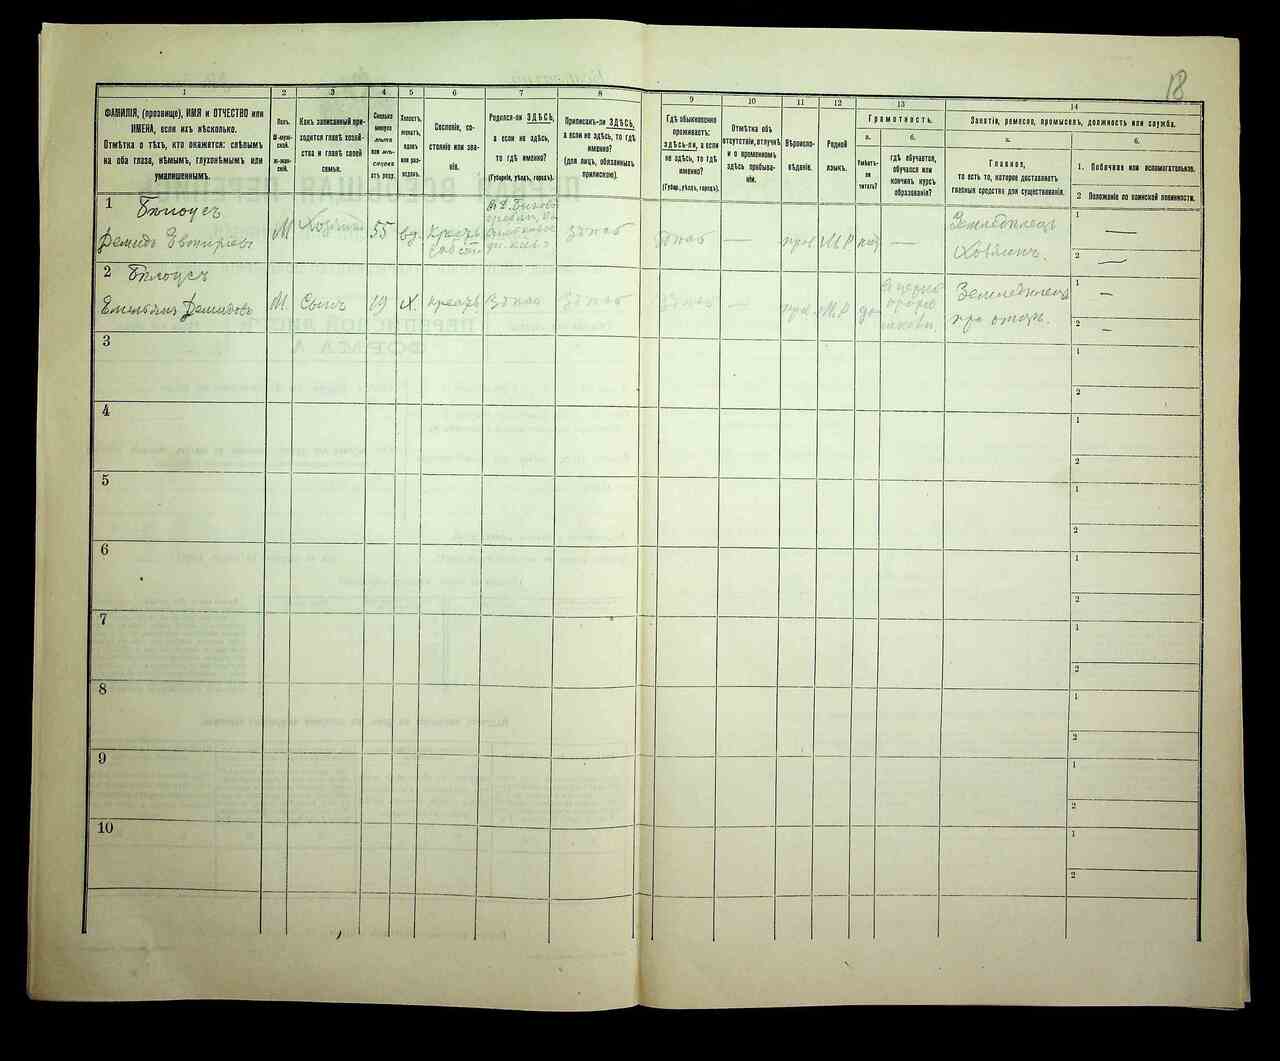 18
1
2
3
4
5
6
7
8
9
10
11
12
13
14
ФАМИЛІЯ, (прозвище), ИМЯ и ОТЧЕСТВО или
ИМЕНА, если ихъ нѣсколько.
Отмѣтка о тѣхъ, кто окажется: слѣпымъ
на оба глаза, нѣмымъ, глухонѣмымъ или
умалишеннымъ.
Полъ.
М-муж-
ской.
Ж-жен-
скій.
Какъ записанный при-
ходится главѣ хозяй-
ства и главѣ своей
семьи.
Сколько
минуло
лѣтъ
или мѣ-
сяцевъ
отъ роду.
Холостъ,
женатъ,
вдовъ
или раз-
веденъ.
Сословіе, со-
стояніе или зва-
ніе.
Родился-ли ЗДѢСЬ,
а если не здѣсь,
то гдѣ именно?
(Губернія, уѣздъ, городъ).
Приписанъ-ли ЗДѢСЬ,
а если не здѣсь, то гдѣ
именно?
(для лицъ, обязанныхъ
припискою).
Гдѣ обыкновенно
проживаетъ:
здѣсь-ли, а если
не здѣсь, то гдѣ
именно?
(Губерн., уѣздъ, городъ).
Отмѣтка объ
отсутствіи, отлучкѣ
и о временномъ
здѣсь пребыва-
ніи.
Вѣроиспо-
вѣданіе.
Родной
языкъ.
Грамотность.
а.
б.
Умѣетъ-
ли
читать?
гдѣ обучается,
обучался или
кончилъ курсъ
образованія?
Занятіе, ремесло, промыселъ, должность или служба.
а.
б.
Главное,
то есть то, которое доставляетъ
главныя средства для существованія.
1. Побочное или вспомогательное.
2 Положеніе по воинской повинности.
1
Бѣлоусъ
Демидъ
М
Хозяинъ
55
вд.
Крест.
зд
прав.
М.Р
нѣтъ
—
Земледѣлецъ
Хозяинъ.
1
—
2
—
2
Бѣлоусъ
Емельянъ Демидовъ
М.
Сынъ
19
Х.
крест.
—
прав.
М.Р
да
Земледѣлецъ
при отцѣ.
1
—
2
—
3
1
2
4
1
2
5
1
2
6
1
2
7
1
2
8
1
2
9
1
2
10
1
2